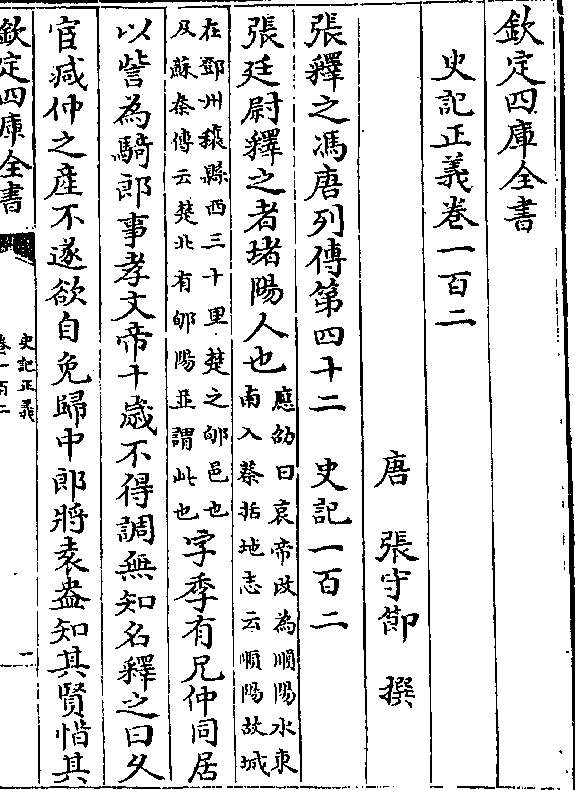 欽定四庫全書
史記正義卷一百二
唐 張守節 撰
張釋之馮唐列傳第四十二 史記一百二
張廷尉釋之者堵陽人也應劭曰哀帝改為順陽水東
南入蔡括地志云順陽故城
在鄧州穰縣西三十里楚之郇邑也
及蘇秦傳云楚北有郇陽並謂此也字季有兄仲同居
以訾為騎郎事孝文帝十歲不得調無知名釋之曰久
宦減仲之產不遂欲自免歸中郎將袁盎知其賢惜其
欽定四庫全書
史記正義
卷一百二
一